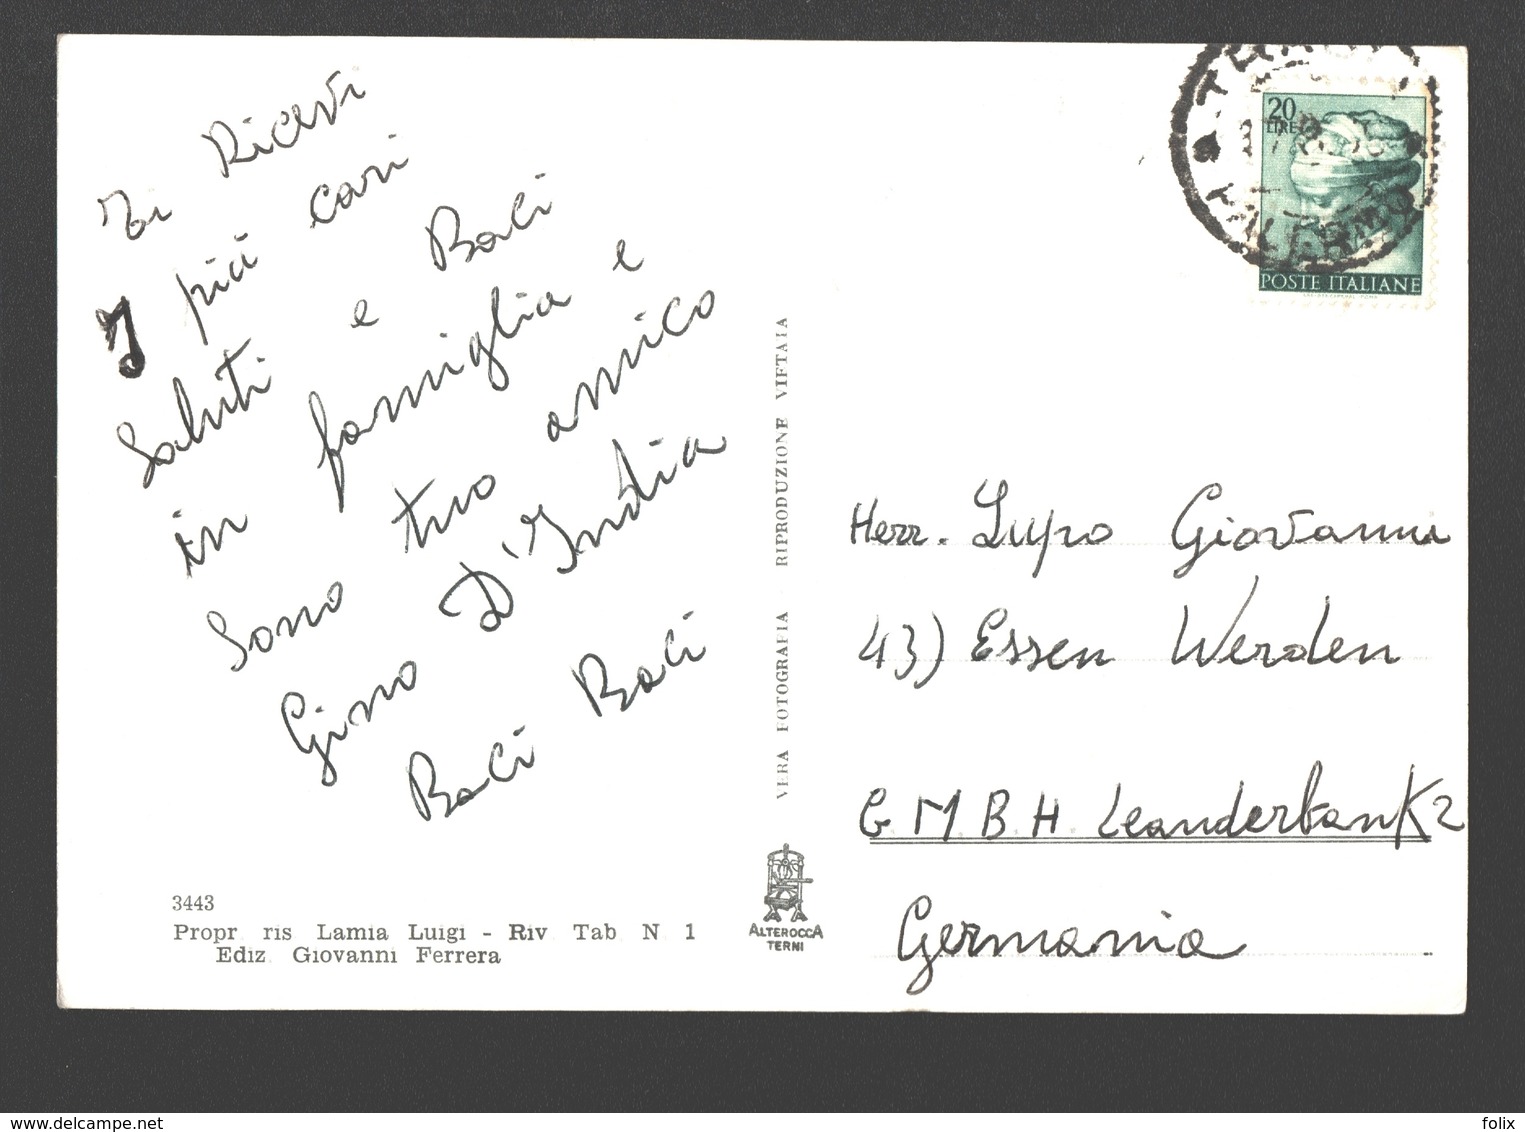 Ti Ricevi
I più cari
Saluti e Baci
in famiglia e
Sono tuo amico
Gino D'India
Baci Baci
3443
Propr ris Lamia Luigi - Riv Tab N 1
Ediz Giovanni Ferrera
VERA FOTOGRAFIA RIPRODUZIONE VIETATA
ALTEROCCA
TERNI
20
LIRE
POSTE ITALIANE
PALERMO
Herr. Lupo Giovanni
43) Essen Werden
G M B H Leanderbank 2
Germania
folix